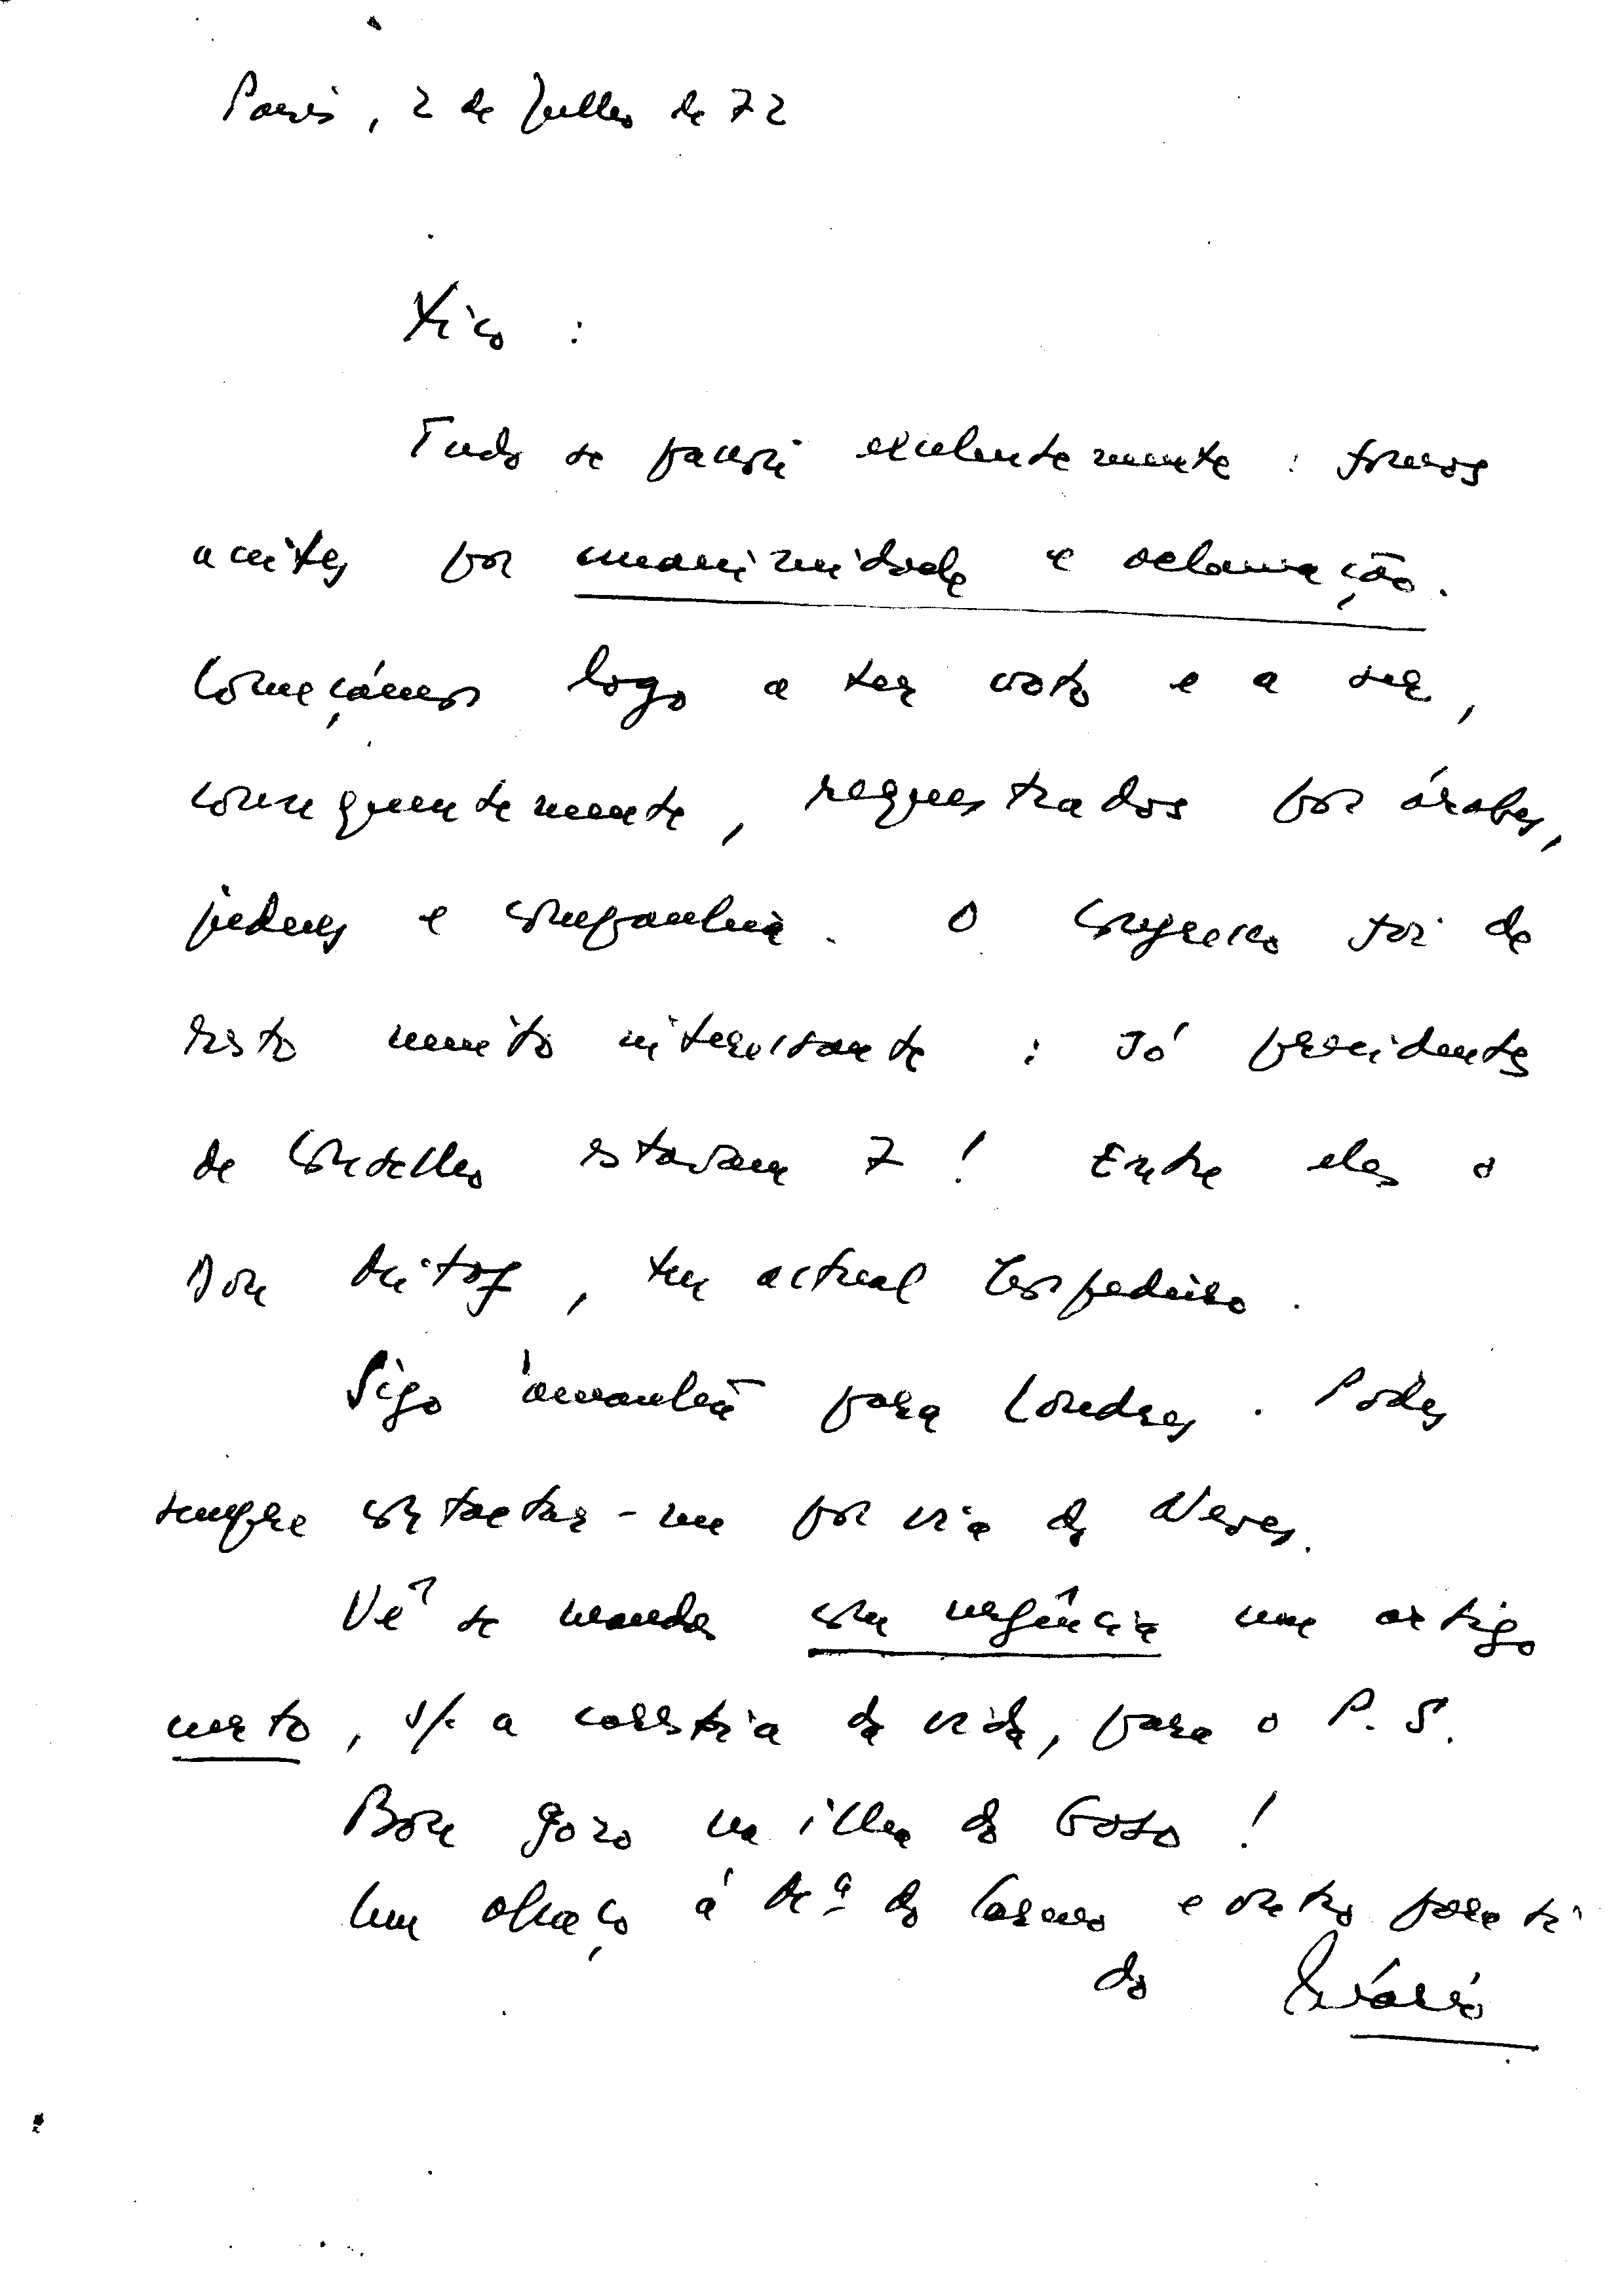 Paris, 2 de Julho de 72
Xico :
Tudo se passou excelentemente : fomos
aceites por unanimidade e aclamação.
Começámos logo a ter voto e a ser,
consequentemente, requestrados por árabes,
judeus e companhia. O Congresso foi de
resto muito interessante : só presidentes
de Conselho estavam 7 ! Entre eles o
Dom Mintoff, teu actual hospedeiro.
Sigo àmanhã para Londres. Podes
sempre contactar-me por via do Neves.
Vê se mandas com urgência um artigo
curto, s/. a carestia da vida, para o P. S.
Bom gozo na ilha do Gozo !
Um abraço à Mª do Carmo e outro para ti
do Mário